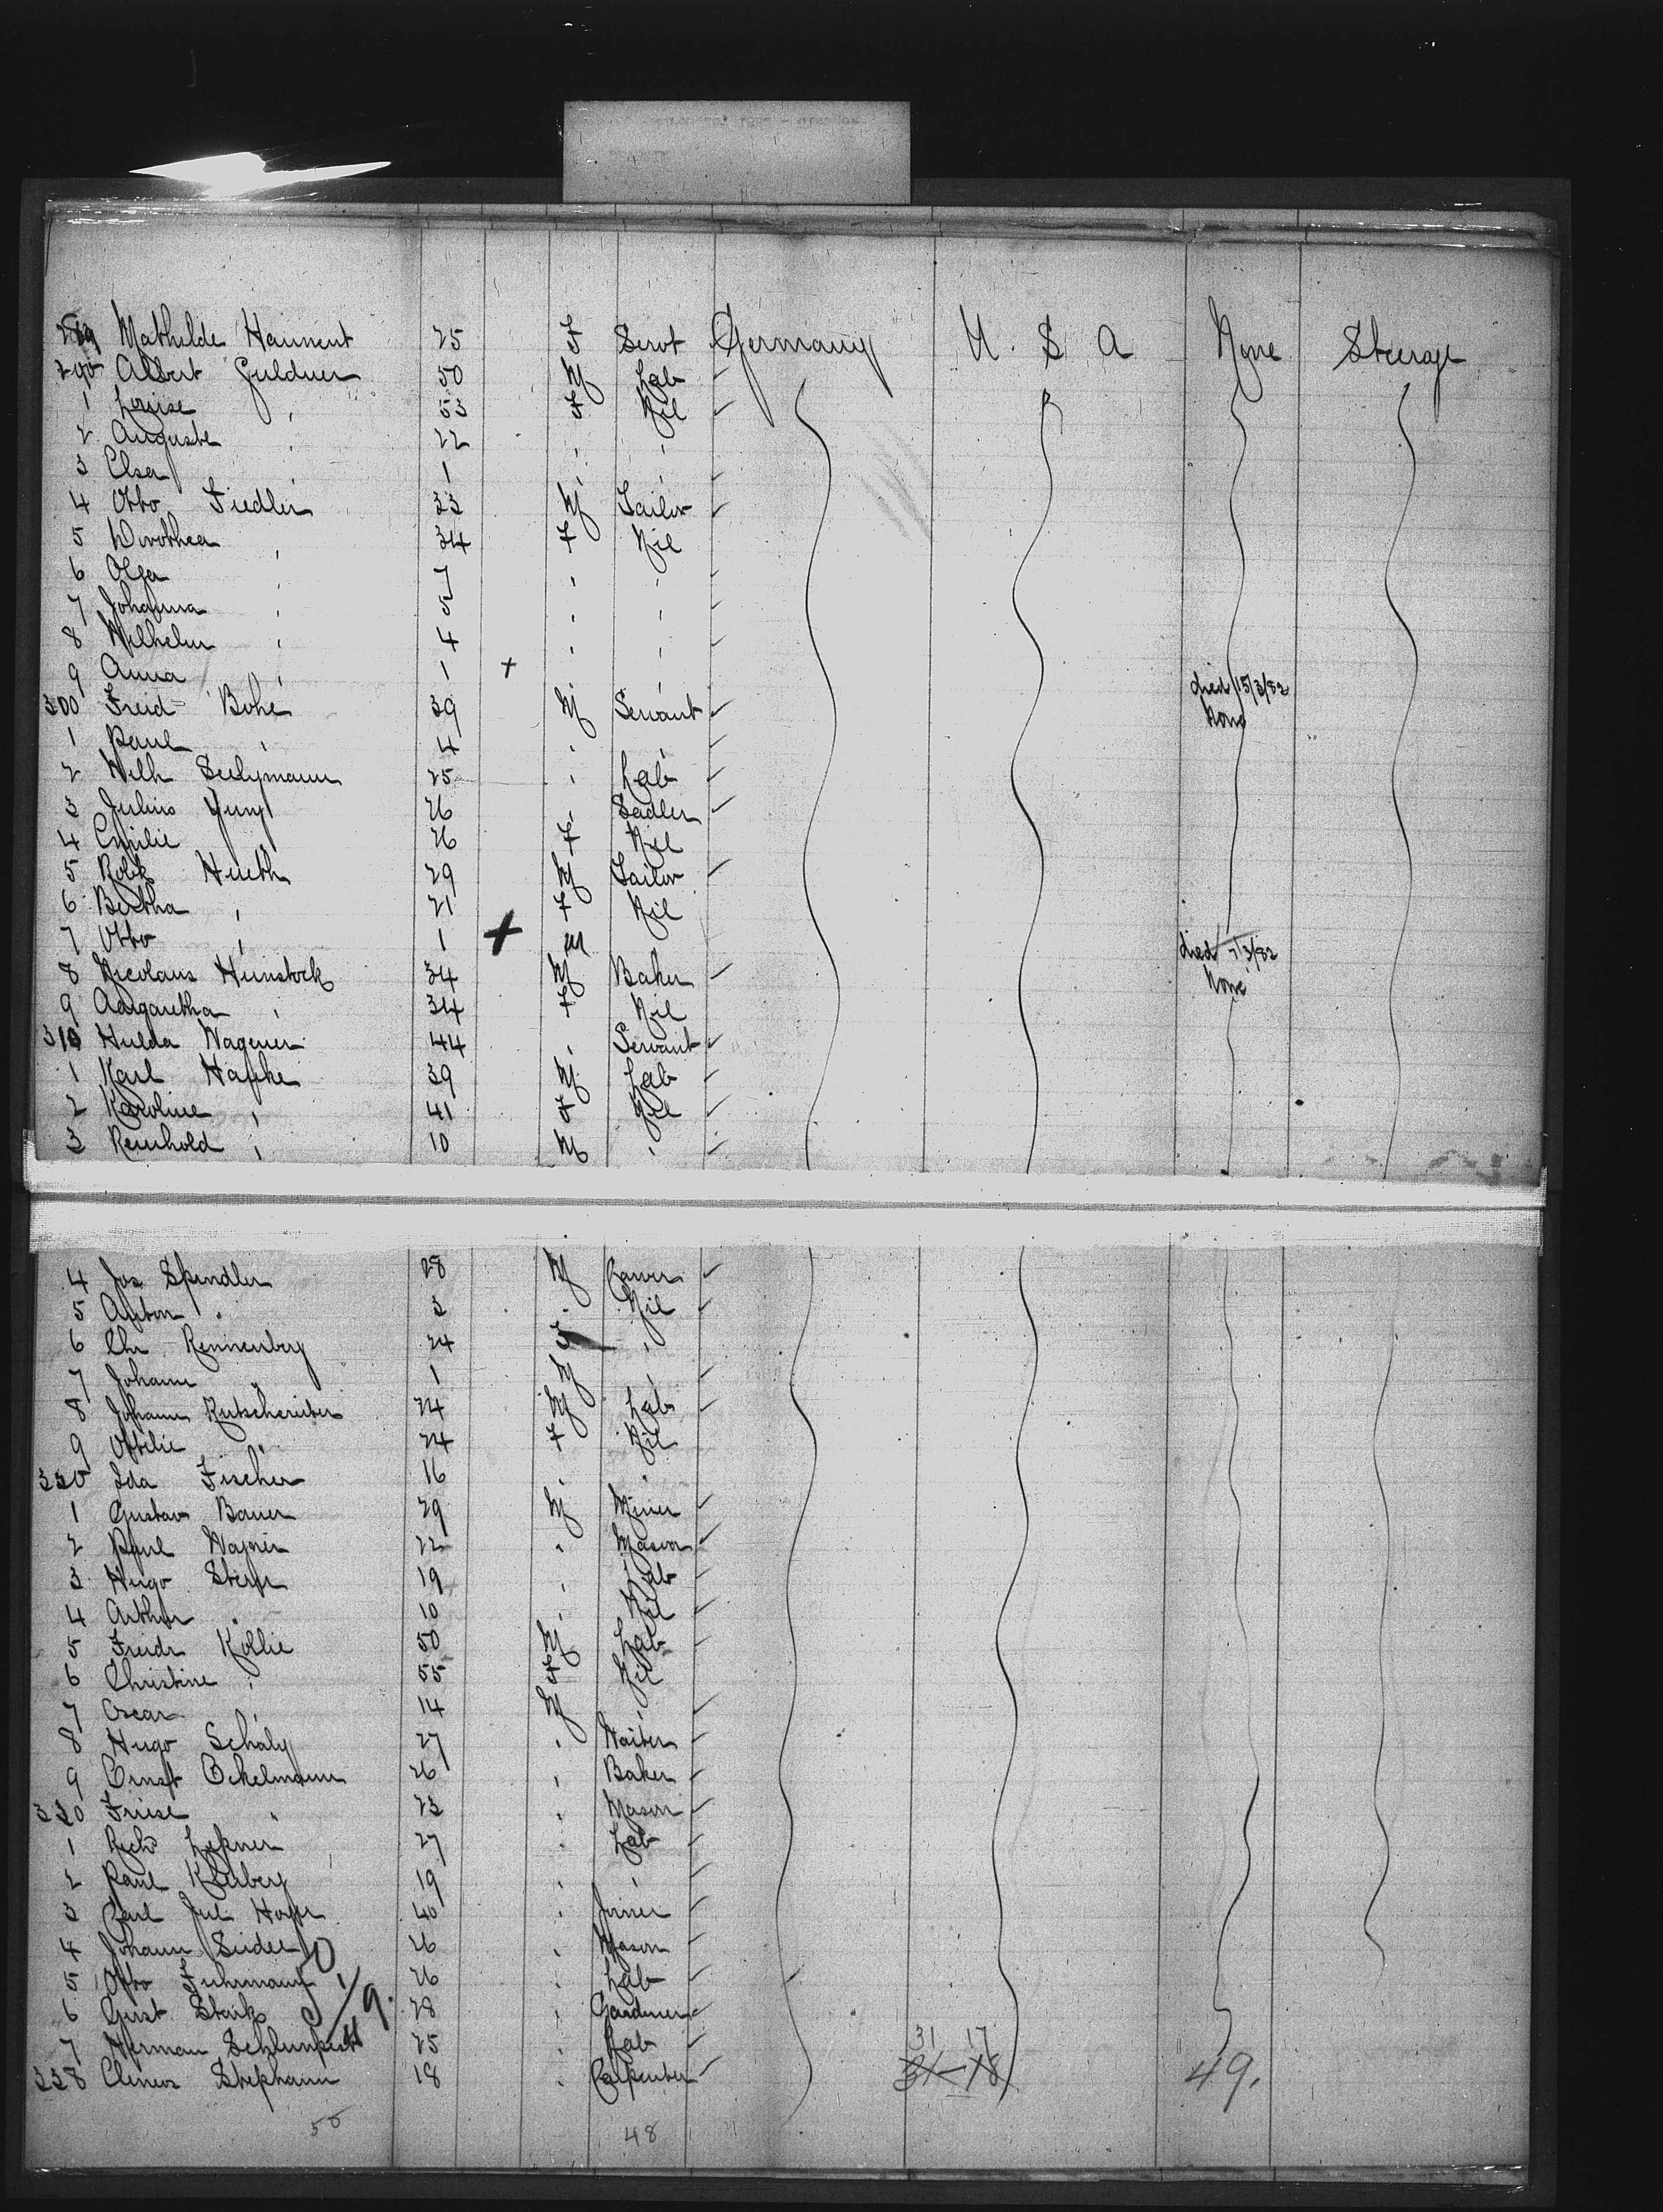 289 Mathilde Haunent 25 F Servt Germany U. S A None Steerage
290 Albert Guldner 50 M Lab
1 Louise " 53 F Nil
2 Auguste " 22 " "
3 Elsa " 1 " "
4 Otto Fiedler 33 M Tailor
5 Dorothea " 34 F Nil
6 Olga " 7 " "
7 Johanna " 5 " "
8 Wilhelm " 4 " "
9 Anna " 1 + " " died 15/3/82
300 Freid Bohe 39 M Servant None
1 Paul " 4 " "
2 Wilh Seelymann 25 " Lab
3 Julius Jung 26 " Sadler
4 Emilie " 26 F Nil
5 Robt Hueth 29 M Tailor
6 Bertha " 21 F Nil
7 Otto " 1 + M died 7/3/82
8 Nicolaus Hunstock 34 M Baker None
9 Aargaretha " 34 F Nil
310 Hulda Wagener 44 " Servant
1 Karl Hapke 39 M Lab
2 Karoline " 41 F Nil
3 Reinhold " 10 M "
4 Jos Spindler 28 M
5 Anton " 3 " Nil
6 Chr Rennenberg 24 F "
7 Johann " 1 M "
8 Johann Rutschreiter 24 M Lab
9 Ottilie " 24 F Nil
320 Ida Fischer 16 " "
1 Gustav Bauer 29 M Miner
2 Paul Wagner 22 " Mason
3 Hugo 19 " Lab
4 Arthur " 10 " Nil
5 Freidr Kollie 50 M Lab
6 Christine " 55 F Nil
7 Oscar " 14 M "
8 Hugo Schaly 27 " Waiter
9 Ernst Eckelmann 26 " Baker
330 Friese " 23 " Mason
1 Richd Lepner 27 " Lab
2 Paul Kleberg 19 " "
3 Carl Jul Hoyer 40 " Joiner
4 Johann Seidel 26 " Mason
5 Otto Fuhrmann 26 " Lab
6 Gust Stark 28 " Gardner
7 Herman 25 " Lab 31 17
338 Clemens Stephann 18 " Carpenter 31-18 49.
50 48